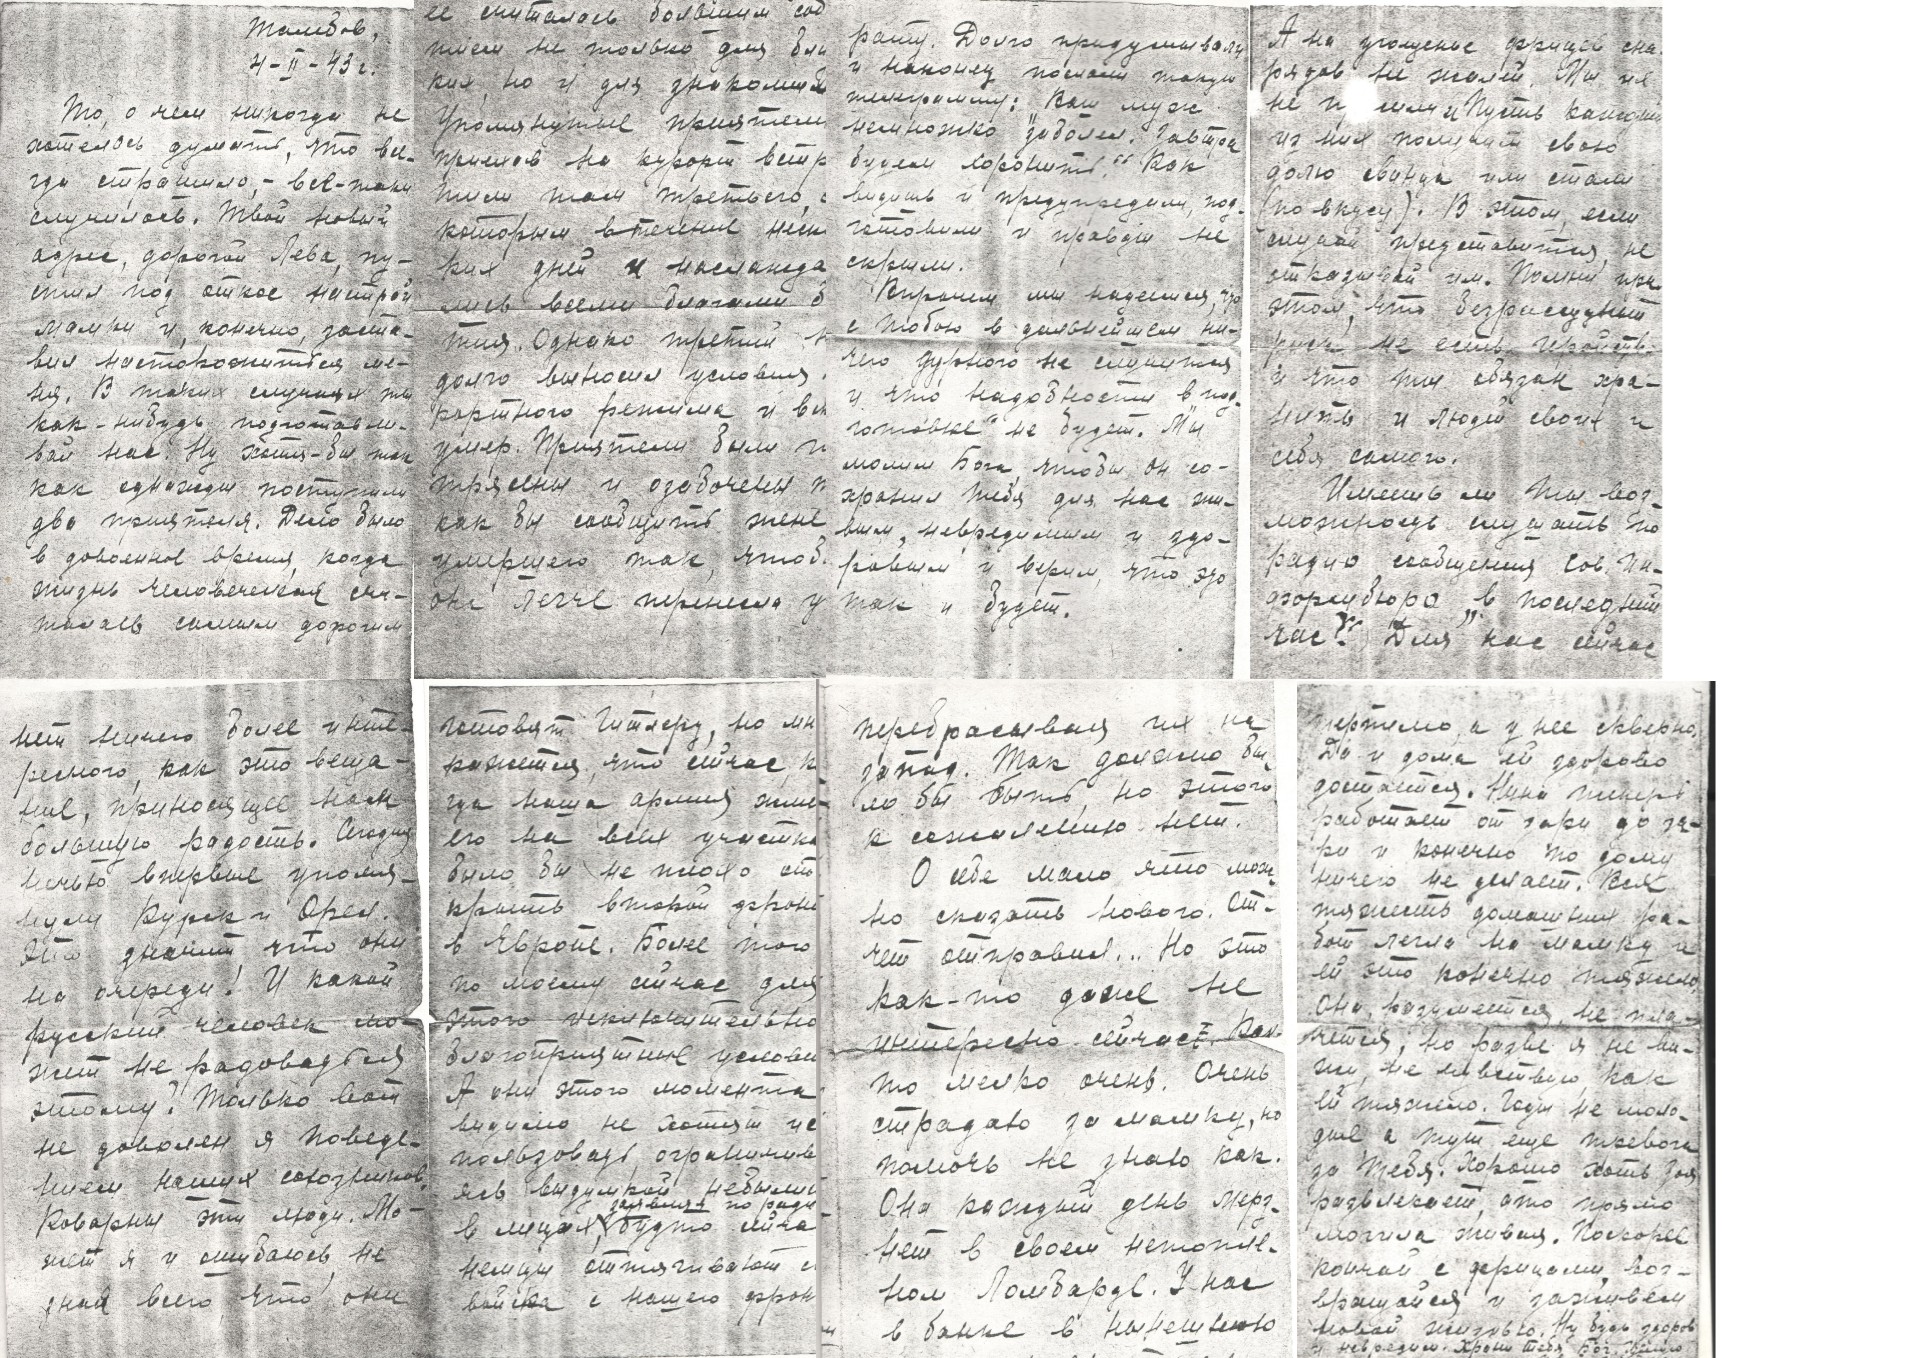 Тамбов,
4-II-43 г.
То, о чем никогда не
хотелось думать, что все-
гда страшило, - все-таки
случилось. Твой новый
адрес, дорогой Лева, пу-
стил под откос настрой
мамки и, конечно, заста-
вил настокожиться ме-
ня. В таких случаях ты
как-нибудь подготавли-
вай нас. Ну хотя-бы так
как однажды поступили
два приятеля. Дело было
в довоенное время, когда
жизнь человеческая счи-
талась самым дорогим
ее считалась большим соб
тием не только для бли
ких, но и для знакомых
Упомянутые приятели
приехав на курорт встр
тили там третьего, с
которым в течение неск
ких дней и наслажда
лись всеми благами б
тия. Однако третий н
долго выносил условия
рортного режима и вск
умер. Приятели были п
трясены и озабочены т
как бы сообщить жене
умершего так, чтоб
она легче перенесла у
рату. Долго придумывали
и наконец послали такую
телеграмму: "Ваш муж
немножко заболел. Завтра
будем хоронить." Как
видишь и предупредили, под-
готовили и правды не
скрыли.
Впрочем мы надеемся, что
с тобою в дальнейшем ни-
чего дурного не случится
и что надобности в "под-
готовке" не будет. Мы
молим Бога, чтобы он со-
хранил тебя для нас жи-
вым, невредимым и здо-
ровым и верим, что это
так и будет.
А на угощенье фрицев сна-
рядов не жалей. Мы их
не Пусть каждый
из них получит свою
долю свинца или стали
(по вкусу). В этом, если
случай представится, не
отказывай им. Помни при
этом, что безрассудный
риск не есть геройств-
и что ты обязан хра-
нить и людей своих и
себя самого.
Имеешь ли ты воз-
можность слушать по
радио сообщения Сов. Ин-
формбюро "в последний
час"? Для нас сейчас
нет ничего более инте-
ресного, как это веща-
ние, приносящее нам
большую радость. Сегодня
ночью впервые упомя-
нули Курск и Орел.
Это значит, что они
на очереди! И какой
русский человек мо-
жет не радоваться
этому! Только вот
не доволен я поведе-
нием наших союзников.
Коварны эти люди. Мо-
жет я и ошибаюсь, не
зная всего, что они
готовят Гитлеру, но мн
кажется, что сейчас, к
гда наша армия жме
его на всех участка
было бы не плохо от
крыть второй фронт
в Европе. Более того
по моему сейчас для
этого исключительно
благоприятные услови
А они этого момента
видимо не хотят ис
пользовать ограничив
ясь выдумкой небылиц
в лицах, заявляя по ради
будто сейча
немцы оттягивают с
войска с нашего фрон
перебрасывая их на
запад. Так должно бы-
ло бы быть, но этого
к сожалению нет.
О себе мало что мож-
но сказать нового. От-
чет отправил... Но это
как-то даже не
интересно сейчас. Как-
то мелко очень. Очень
страдаю за мамку, но
помочь не знаю как.
Она каждый день мерз-
нет в своем нетопле-
ном Ломбарде. У нас
в банке в нынешнюю
терпимо, а у нее скверно.
Да и дома ей здорово
достается. Нина теперь
работает от зари до за-
ри и конечно по дому
ничего не делает. Вся
тяжесть домашних ра-
бот легла на мамку и
ей это конечно тяжело.
Она, разумеется, не пла-
чется, но разве я не ви-
жу, не чувствую, как
ей тяжело. Годы не моло-
дые а тут еще тревога
за тебя. Хорошо хоть Зоя
развлекает, это прямо
могила живая. Поскорее
кончай с фрицами, воз-
вращайся и заживем
новой жизнью. Ну будь здоров
и невредим. Храни тебя Бог.